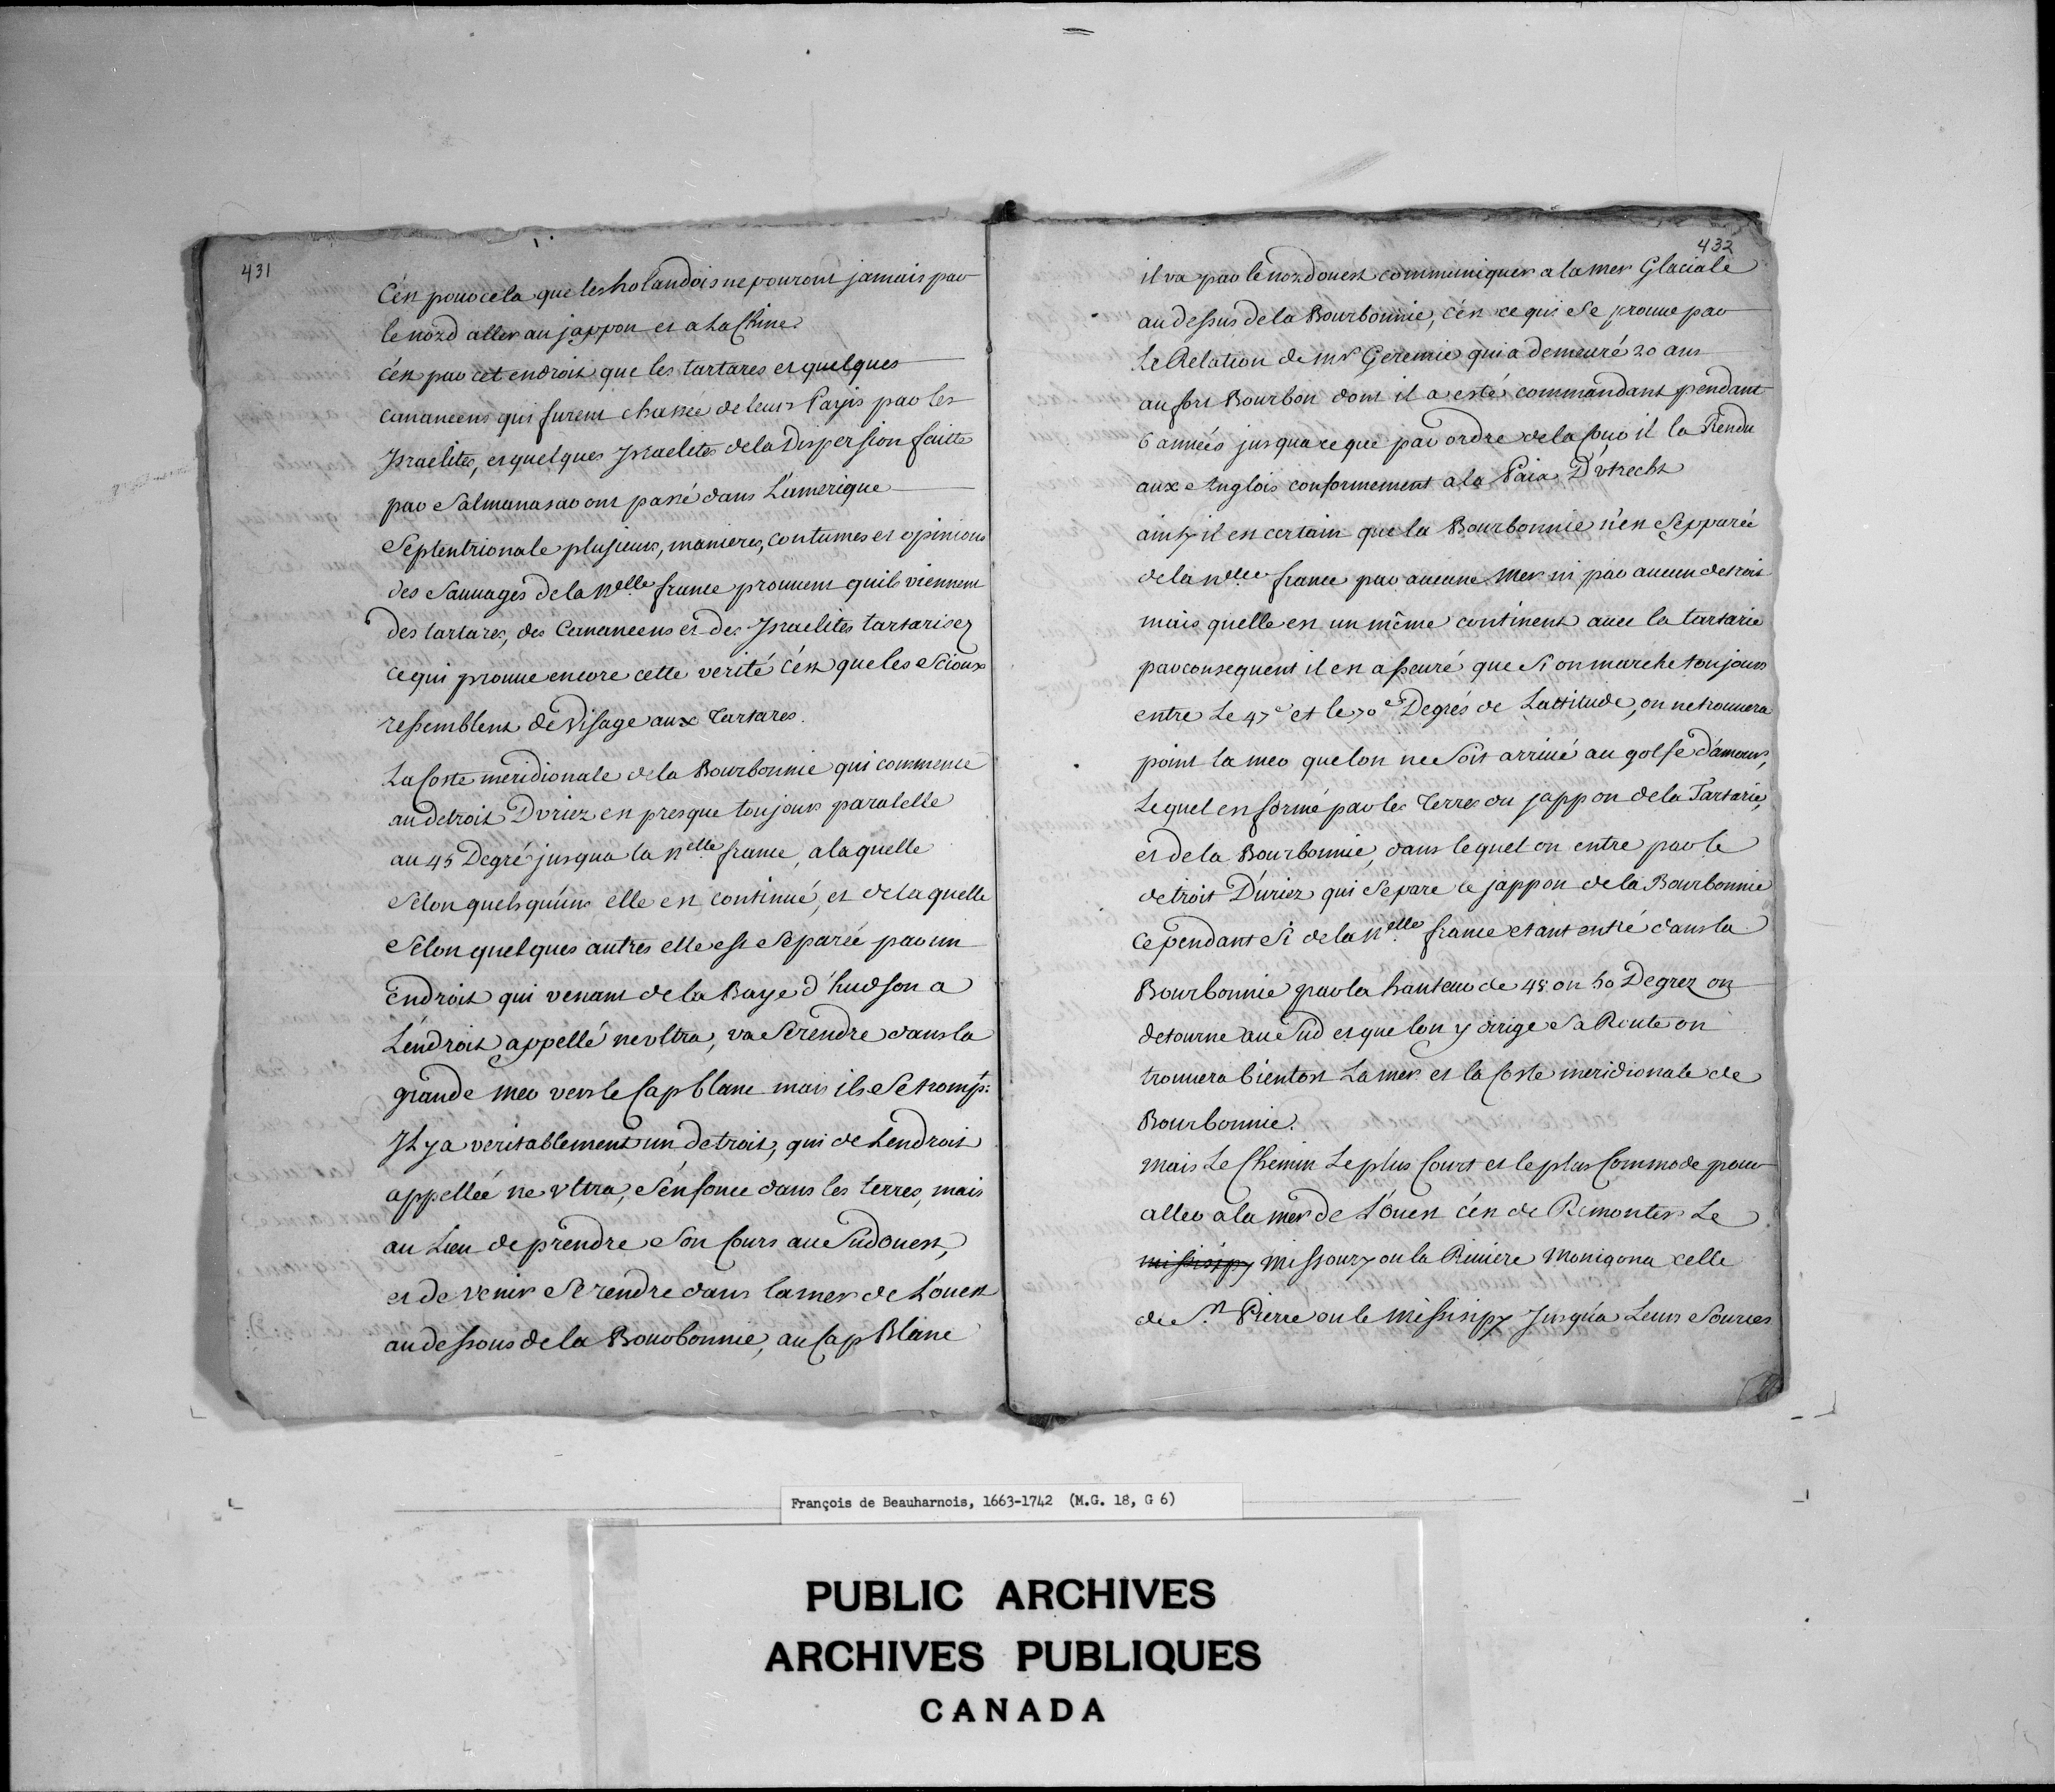 431
C'est pour cela que les holandois ne pouront jamais par
le nord aller au jappon et a la Chine.
c'est par cet endroit que les tartares et quelques
cananeens qui furent chassée de leurs Payis par les
Israelites, et quelques Israelites de la Dispersion faitte
par Salmanasar ont passé dans L'amerique
Septentrionale plusieurs, manieres, coutumes et opinions
des Sauvages de la Nelle france prouvent quils viennent
des tartares, des Cananeens et des Israelites tartarisez
ce qui prouve encore cette verité c'est que les Scioux
ressemblent de Visage aux Tartares.
La Coste meridionale de la Bourbonnie qui commence
au detroit Duriez est presque toujours paralelle
au 45 Degré jusqua la Nelle france, a laquelle
Selon quelsqu'uns elle est continué, et de laquelle
Selon quelques autres elle est Separée par un
Endroit qui venant de la Baye d'hudson a
L'endroit appellé ne vltra, va Se rendre dans la
grande mer vers le Cap blanc mais ils Se trompt.
Il y a veritablement un detroit, qui de Lendroit
appellée ne vltra, S'enfonce dans les terres, mais
au Lieu de prendre Son Cours au Sudouest,
et de venir Se rendre dans la mer de L'ouest
au dessous de la Bourbonnie, au Cap Blanc
432
il va par le nordouest communiquer a la mer Glaciale
au dessus de la Bourbonnie, c'est ce qui Se prouve par
Le Relation de mr Geremie qui a demeuré 20 ans
au fort Bourbon dont il a esté commandant pendant
6 années jusqua ce que par ordre de la Cour il la Rendu
aux Anglois conformement a la Paix D'vtrecht
ainsy il est certain que la Bourbonnie n'est Sepparée
de la Nelle france par aucune Mer ni par aucun detroit
mais quelle est un même continent avec la tartarie
par consequent il est asseuré que Si on marche toujours
entre Le 47e et le 70es Degrés de Lattitude, on ne trouvera
point la mer que lon ne Soit arrivé au golfe d'amour,
Lequel est formé par les Terres du jappon de la Tartarie,
et de la Bourbonnie, dans lequel on entre par le
detroit D'uriez qui Separe le jappon de la Bourbonnie
Cependant Si de la Nelle france etant entré dans la
Bourbonnie par la hauteur de 48 ou 50 Degrez on
detourne au Sud et que lon y dirige Sa Route on
trouvera bientost La mer et la Coste meridionale de
Bourbonnie.
mais Le Chemin Le plus Court et le plus Commode pour
aller a la mer de L'ouest c'est de Remonter Le
missisipy Missoury ou la Riviere Monigona celle
de St. Pierre ou le Missisipy Jusqu'a Leurs Sources
François de Beauharnois, 1663-1742 (M.G. 18, G 6)
PUBLIC ARCHIVES
ARCHIVES PUBLIQUES
CANADA